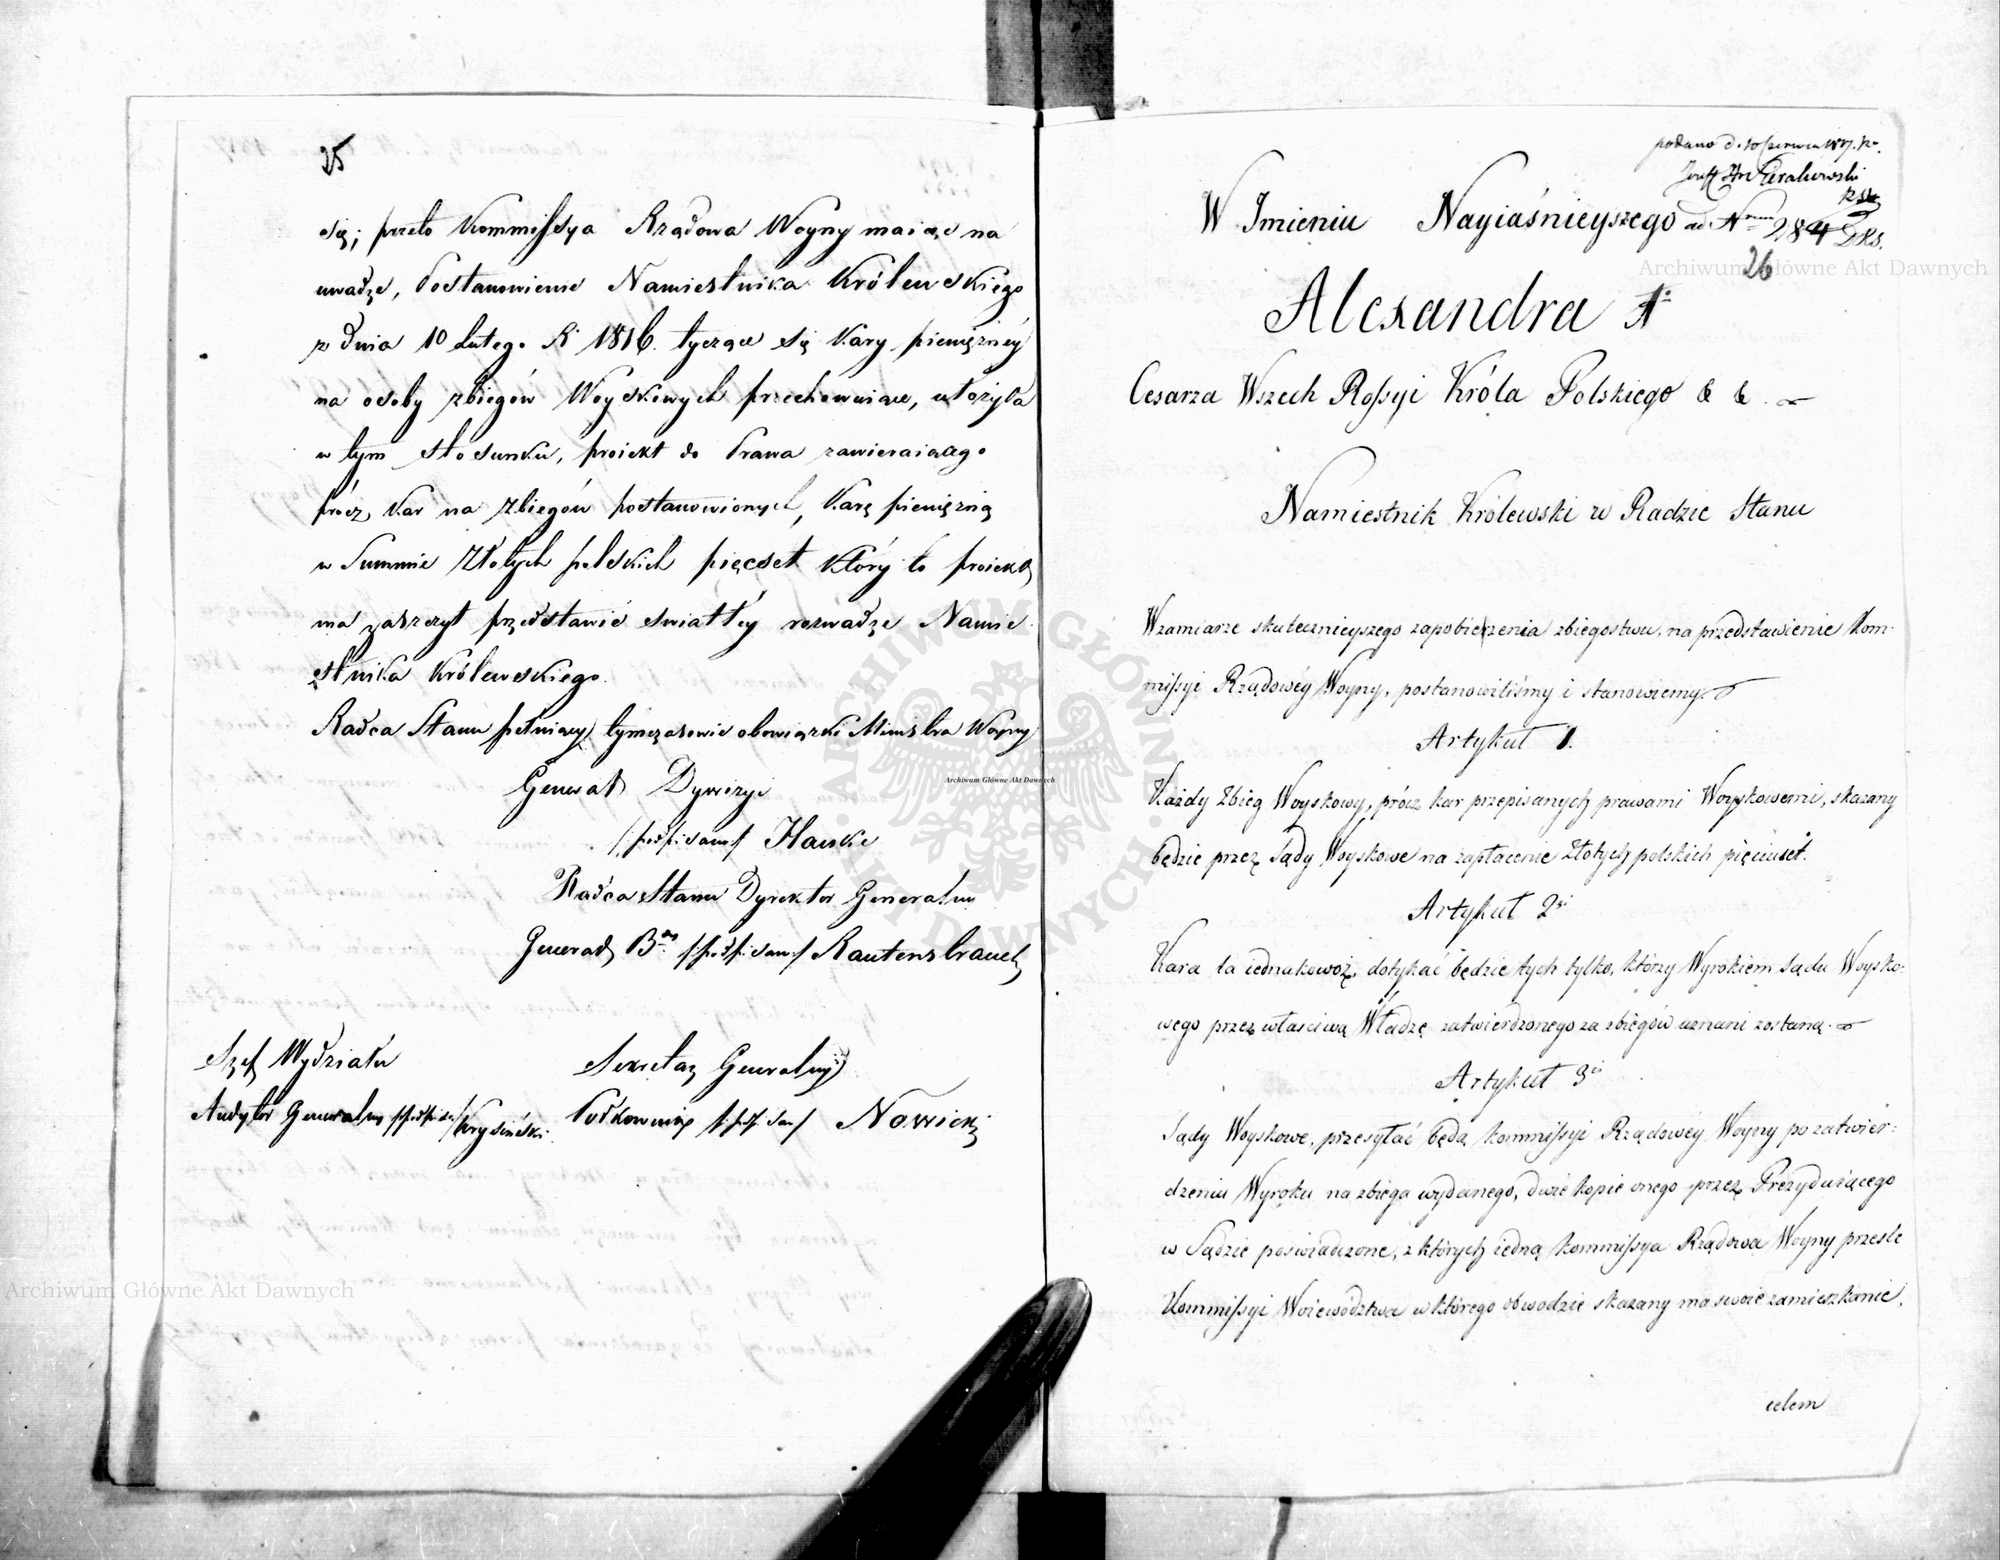 25
się; przeto Kommissya Rządowa Woyny maiąc na
uwadze, Postanowienie Namiestnika Królewskiego
z dnia 10 Lutego R 1816. tyczące się Kary pieniężnéy
na osoby zbiegów Woyskowych przechowuiące, ułożyła
w tym stosunku, proiekt do Prawa zawieraiącego
prócz Kar na zbiegów postanowionych, Karę pieniężną
w Summie Złotych polskich pięcset który to proiekt
ma zaszczyt przedstawić światłéy rozwadze Namie-
stnika Królewskiego.
Radca Stanu pełniący tymczasowie obowiązki Ministra Woyny
Generał Dywizyi
/:podpisano:/ Hauke
Radca Stanu Dyrektor Generalny
Generał B. /:podpisano:/ Rautenstrauch
Szef Wydziału
Sekretarz Generalny
Audytor Generalny /:podpisano:/ Krysiński
Półkownik /:podpisano:/ Nowicki
podano d. 10 Czerwca 1817. r.
W Imieniu Nayiaśnieyszego
ad Num 284
26
Alexandra I
Cesarza Wszech Rossyi Króla Polskiego & & .
Namiestnik Królewski w Radzie Stanu
W zamiarze skutecznieyszego zapobieżenia zbiegostwu, na przedstawienie Kom-
missyi Rządowéy Woyny, postanowiliśmy i stanowiemy.
Artykuł 1.
Każdy Zbieg Woyskowy, prócz kar przepisanych prawami Woyskowemi, skazany
będzie przez Sądy Woyskowe na zapłacenie Złotych polskich pięciuset.
Artykuł 2gi
Kara ta iednakowoż, dotykać będzie tych tylko, którzy Wyrokiem Sądu Woysko-
wego przez właściwą Władzę zatwierdzonego za zbiegów uznani zostaną.
Artykuł 3ci
Sądy Woyskowe, przesyłać będą Kommissyi Rządowey Woyny po zatwier-
dzeniu Wyroku na zbiega wydanego, dwie kopie onego przez Prezyduiącego
w Sądzie poświadczone, z których iedną Kommissya Rządowa Woyny prześle
Kommissyi Woiewództwa w którego obwodzie skazany ma swoie zamieszkanie,
celem
Archiwum Główne Akt Dawnych
Archiwum Główne Akt Dawnych
Archiwum Główne Akt Dawnych
ARCHIWUM GŁÓWNE AKT DAWNYCH